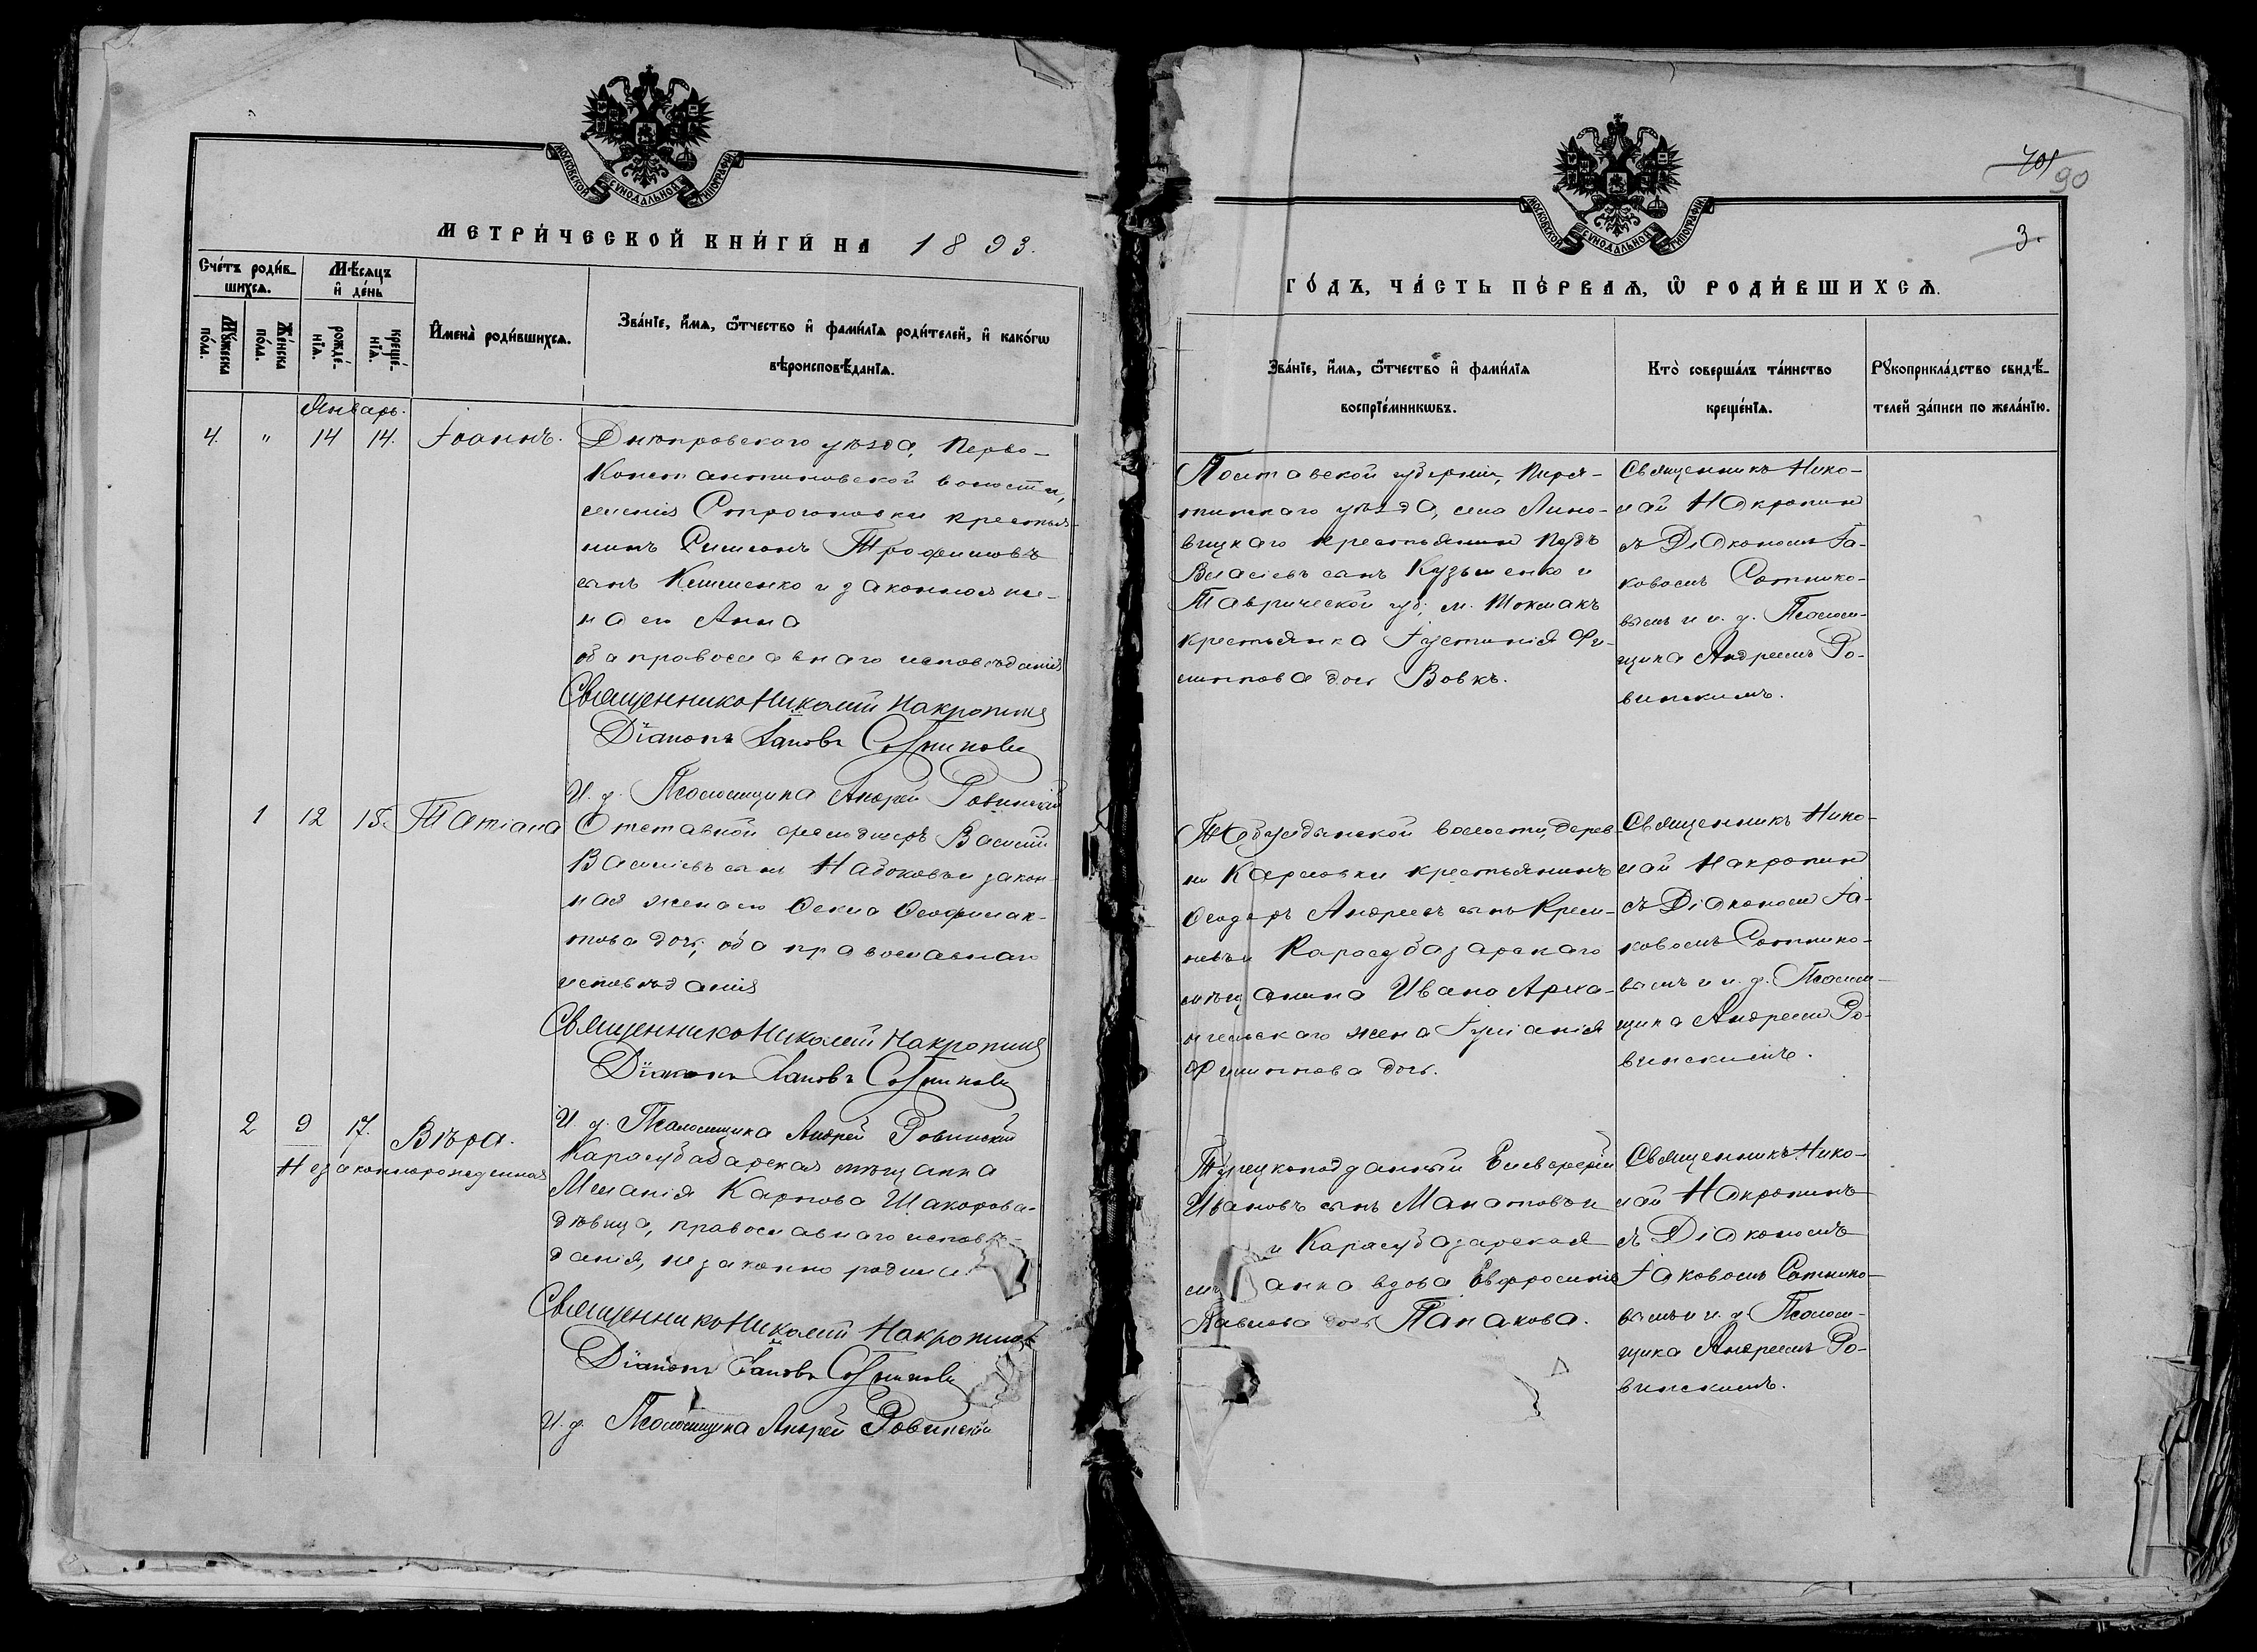 МОСКОВСКОЙ СѴНОДАЛЬНОЙ ТИПОГРАФІИ
МЕТРИ́ЧЕСКОЙ КНИ́ГИ НА 1893.
Сче́тъ роди́в-
шихсѧ.
Мѣ́сѧцъ
и҆ де́нь
Мꙋ́жеска
по́ла.
Же́нска
по́ла.
рожде́-
нїѧ.
креще́-
нїѧ.
И҆мена̀ роди́вшихсѧ.
Зва́нїе, и҆́мѧ, ѻ҆́тчество и҆ фами́лїѧ роди́телей, и҆ како́гѡ
вѣроисповѣ́данїѧ.
Январь.
4. " 14 14. Іоаннъ.
Днѣпровскаго уѣзда, Перво-
Константиновской волости,
селенія Строгоновки крестья-
нинъ Симеонъ Трофимовъ
сынъ Клименко и законная же-
на его Анна
оба православнаго исповѣданія
Священникъ Николай Накропинъ
Діаконъ Іаковъ Сотниковъ
И. д. Псаломщика Андрей Ровинскій
1 12 15. Татіана
Отставной фельдшеръ Василій
Васильевъ сынъ Набоковъ и закон-
ная жена его Ѳекла Ѳеофилак-
това дочь, оба православнаго
исповѣданія
Священникъ Николай Накропинъ
Діаконъ Іаковъ Сотниковъ
И. д. Псаломщика Андрей Ровинскій
2 9 17. Вѣра.
Незаконнорожденная
Карасубазарская мѣщанка
Меланія Карпова Шакорова-
дѣвица, православнаго исповѣ-
данія, незаконно родила
Священникъ Николай Накропинъ
Діаконъ Іаковъ Сотниковъ
И. д. Псаломщика Андрей Ровинскій
МОСКОВСКОЙ СѴНОДАЛЬНОЙ ТИПОГРАФІИ
90
3.
ГО́ДЪ, ЧА́СТЬ ПЕ́РВАѦ, Ѡ҆ РОДИ́ВШИХСѦ.
Зва́нїе, и҆́мѧ, ѻ҆́тчество и҆ фами́лїѧ
воспрїе́мникѡвъ.
Кто̀ соверша́лъ та́инство
креще́нїѧ.
Рꙋкоприкла́дство свидѣ́-
телей за́писи по жела́нїю.
Полтавской губерніи, Пиря-
тинскаго уѣзда, села Лино-
вицкаго крестьянинъ Іудъ
Власіевъ сынъ Кузьменко и
Таврической губ; м. Токмакъ
крестьянка Іустинія Фи-
липпова дочь Вовкъ.
Священникъ Нико-
лай Накропин
съ Діакономъ Іа-
ковомъ Сотнико-
вымъ и и. д. Псалом-
щика Андреемъ Ро-
винскимъ.
волости, дерев-
ни Карловки крестьянинъ
Ѳеодоръ Андреевъ сынъ
и Карасубазарскаго
мѣщанина Ивана Арха-
нгельскаго жена Іуліанія
Филиппова дочь.
Священникъ Нико-
лай Накропин
съ Діакономъ Іа-
ковомъ Сотнико-
вымъ и и. д. Псалом-
щика Андреем Ро-
винскимъ.
Турецкоподданный Елевферій
Ивановъ сынъ Манатовъ и
и Карасубазарская
мѣ анка вдова Евфросинія
Павлова дочь Папакова.
Священникъ Нико-
лай Накропинъ
съ Діакономъ
Іаковомъ Сотнико-
вымъ и и. д. Псалом-
щика Андреемъ Ро-
винскимъ.